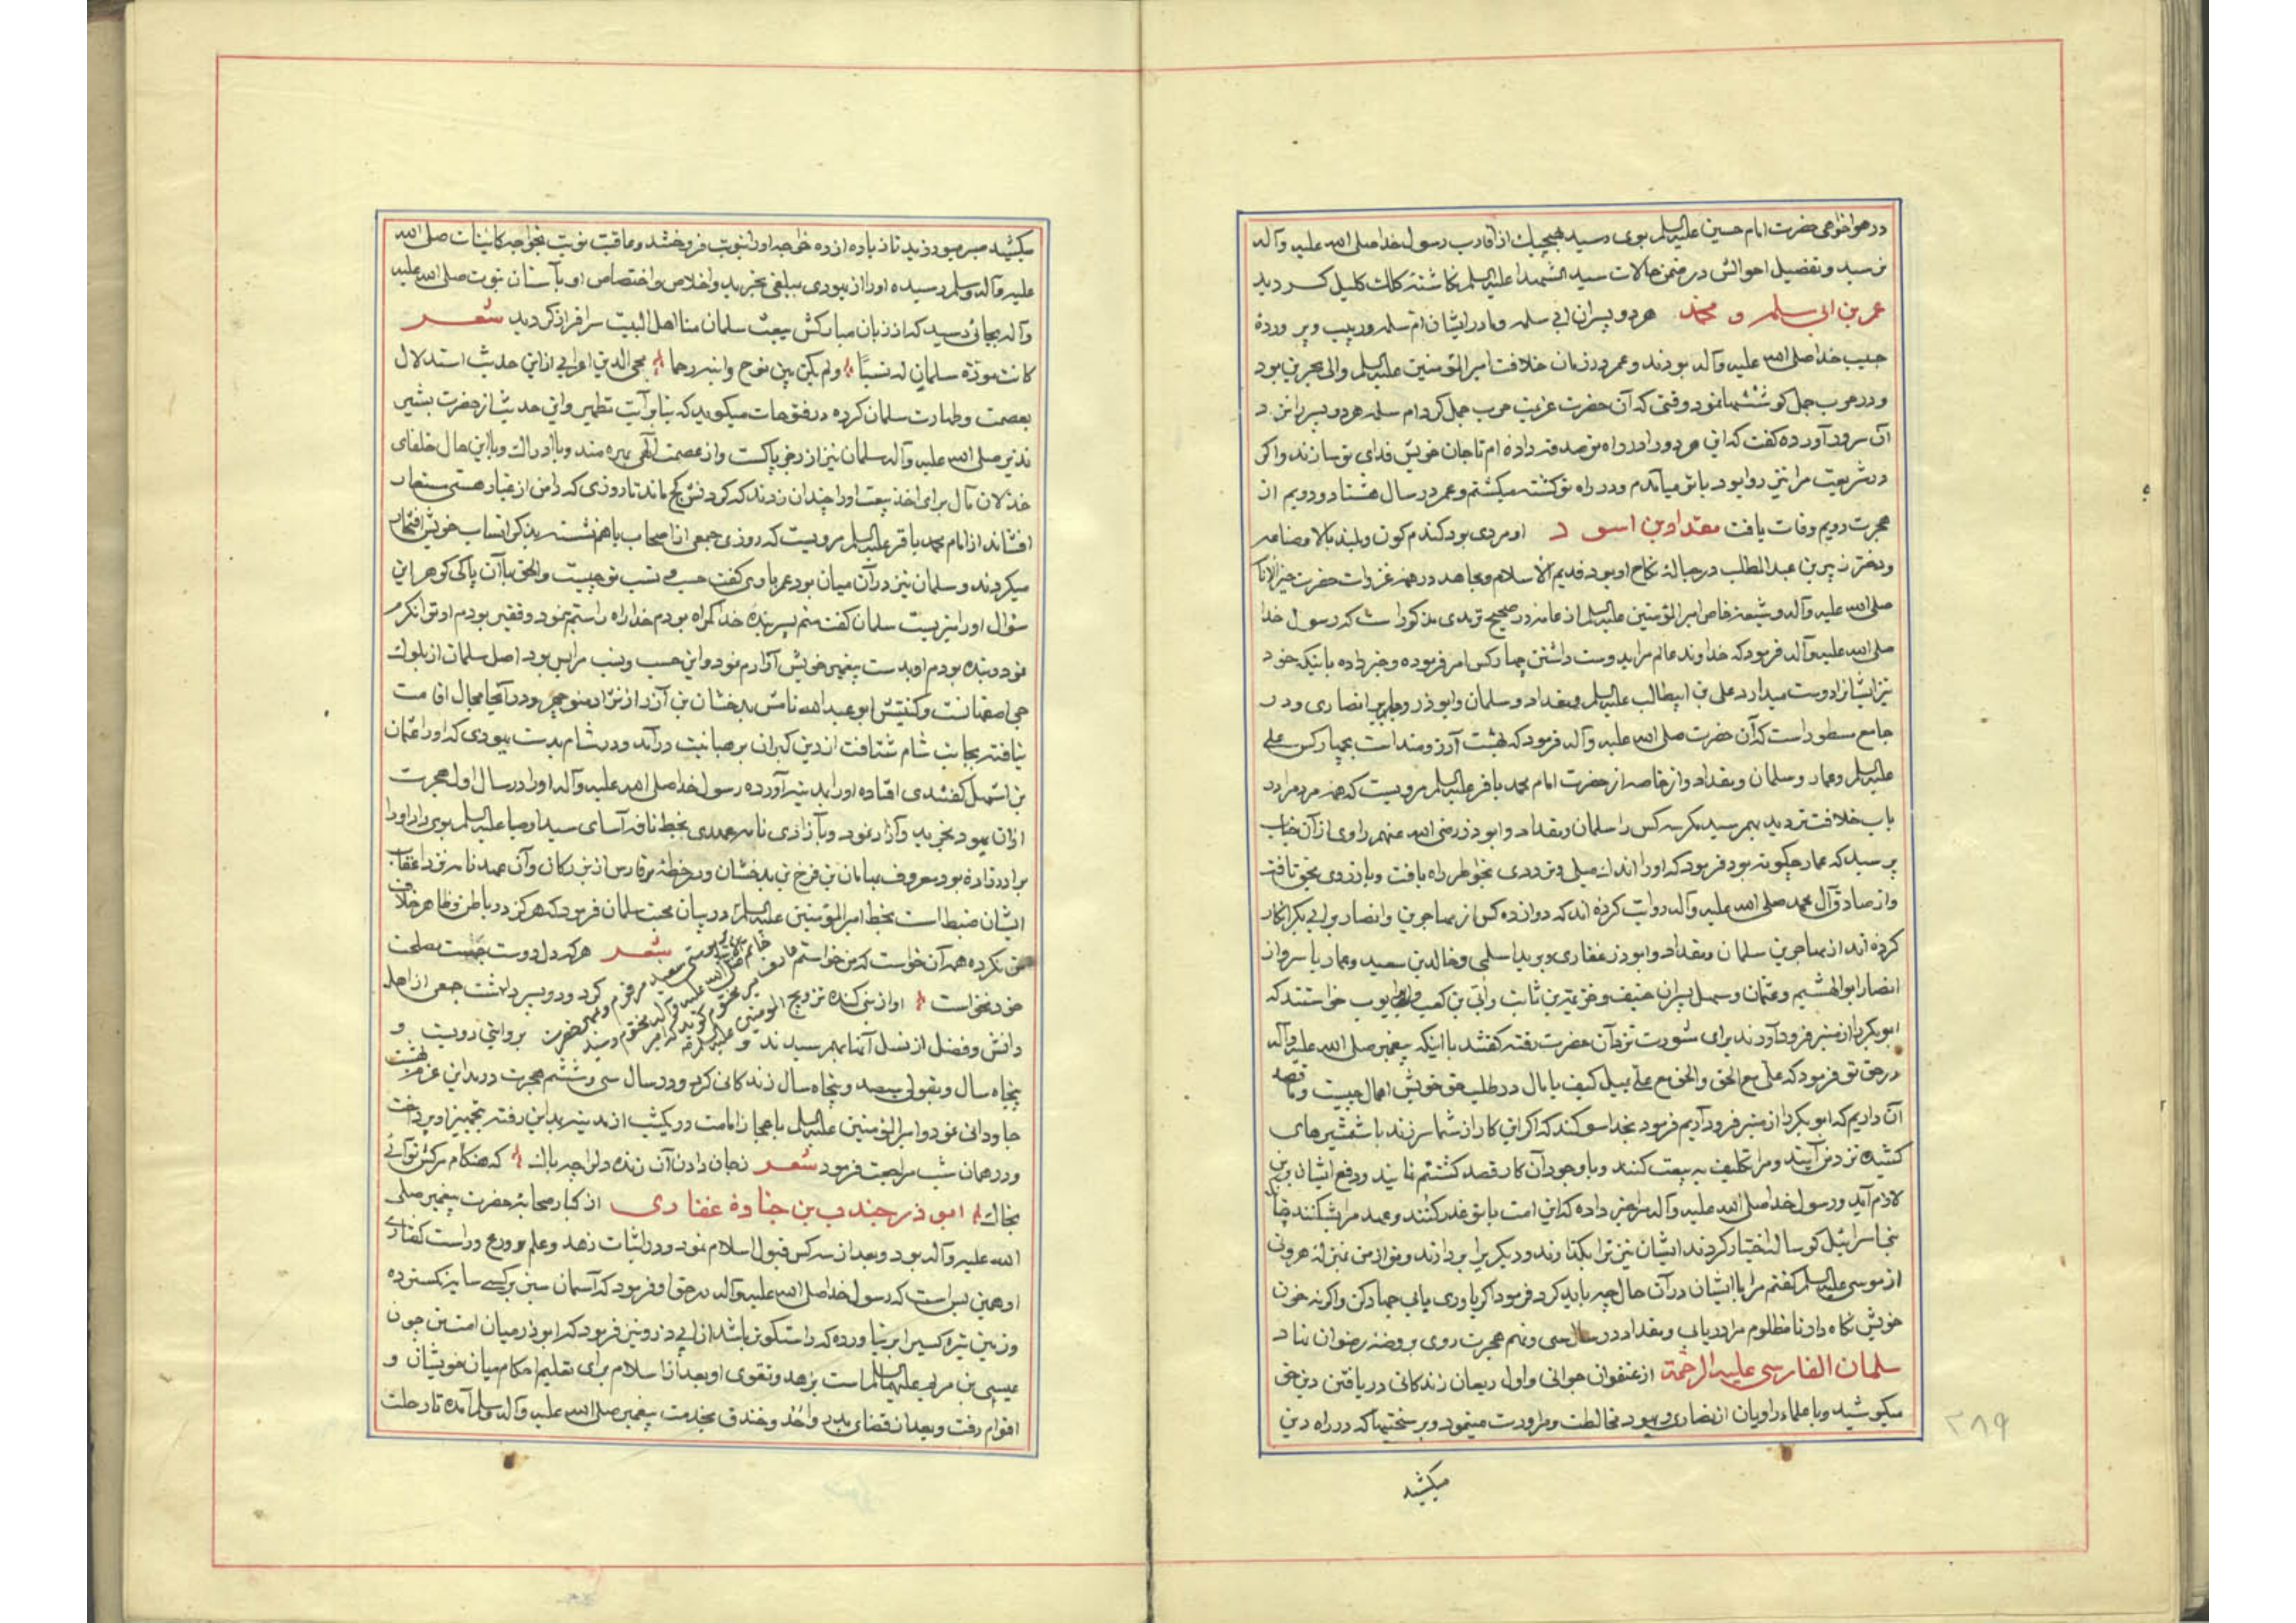 در هواخواهی حضرت امام حسین علیه السلم بوی رسید هیچیک از اقارب رسول خدا صلی الله علیه وآله
نرسید و تفضیل احوالش در ضمن حالات سید الشهدا علیه السلم نکاشته کلک کلیل کردید
عمر بن ابی سلمه و محمد هر دو پسران ابی سلمه و مادر ایشان ام سلمه و ربیب و پرورده
حبیب خدا صلی الله علیه وآله بودند و عمر در زمان خلافت امیر المؤمنین علیه السلم والی بحرین بود
و در حرب جمل کوششها نمود وقتی که آن حضرت عزیمت حرب جمل کرد ام سلمه هر دو پسر را نزد
آن سرور آورده کفت که این هر دو را در راه تو صدقه داده ام تا جان خویش فدای تو سازند و اکر
در شریعت مرا نیز روا بود با تو میآمدم و در راه تو کشته میکشتم و عمر در سال هشتاد و دویم از
هجرت دویم وفات یافت مقداد بن اسود او مردی بود کندم کون و بلند بالا و ضاعه
دختر زبیر بن عبد المطلب در حباله نکاح او بود قدیم الاسلام و مجاهد در همه غزوات حضرت خیر الانام
صلی الله علیه وآله و شیعه خاص امیر المؤمنین علیه السلم از عامه در صحیح ترمدی مذکور است که رسول خدا
صلی الله علیه وآله فرمود که خداوند عالم مرا بدوست داشتن چهار کس امر فرموده و خبر داده باینکه خود
نیز ایشانرا دوست میدارد علی بن ابیطالب علیه السلم و مقداد و سلمان و ابوذر و جابر انصاری و در
جامع مسطور است که آن حضرت صلی الله علیه وآله فرمود که بهشت آرزومند است بچهار کس علی
علیه السلم و عمار و سلمان و مقداد و از خاصه از حضرت امام محمد باقر علیه السلم مرویست که همه مردم را در
باب خلافت تردید بهم رسید مکر سه کس را سلمان و مقداد و ابوذر رضی الله عنهم راوی از آن جناب
پرسید که عمار چکونه بود فرمود که او را اندک میلی و ترددی بخواطر راه یافت و بازروی بحق تافت
و از صادق آل محمد صلی الله علیه وآله روایت کرده اند که دوازده کس از مهاجرین و انصار بر ابی بکر انکار
کرده اند از مهاجرین سلمان و مقداد و ابوذر غفاری و بریدا سلمی و خالد بن سعید و عمار یاسر و از
انصار ابو الهشیم و عثمان و سهل پسران حنیف و خزیمه بن ثابت و ابی بن کعب و ابو ایوب خواستند که
ابو بکر را از منبر فرود آورند برای شورت نزد آن حضرت رفته کفتند با اینکه پیغمبر صلی الله علیه وآله
در حق تو فرمود که علی مع الحق والحق مع علی یمیل کیف یا مال در طلب حق خویش اهمال چیست و ما قصد
آن داریم که ابو بکر را از منبر فرود آریم فرمود بخدا سوکند که اکر این کار از شما سر زند با شمشیرهای
کشیده نزد من آیند و مرا تکلیف به بیعت کنند و با وجود آن کار قصد کشتنم نمایند و دفع ایشان بر من
لازم آید و رسول خدا صلی الله علیه وآله مرا خبر داده که این امت با تو غدر کنند و عهد مرا بشکنند چنانکه
بنی اسرائیل کوساله اختیار کردند ایشان نیز ترا بکذارند و دیکریرا بردارند و تو از من بمنزله هرونی
از موسی علیه السلم کفتم مرا با ایشان در آن حال چه باید کرد فرمود اکر یاوری یابی جهاد کن و اکر نه خون
خویش نکاه دار تا مظلوم مرا دریابی و مقداد در سال سی و نهم هجرت روی بروضه رضوان نهاد
سلمان الفارسی علیه الرحمة از عنفوان جوانی و اول ریعان زندکانی در یافتن دین حق
میکوشید و با علماء و راویان از نصاری و یهود مخالطت و مراودت مینمود و بر سختیها که در راه دین
میکشید
۲۸۹
میکشید صبر میورزید تا زیاده از ده خواجه او را بنوبت فروختند و عاقبت نوبت بخواجه کاینات صلی الله
علیه وآله وسلم رسیده او را از یهودی بمبلغی بخرید و اخلاص و اختصاص او بآستان نبوت صلی الله علیه
وآله بجائی رسید که از زبان مبارکش بیعت سلمان منا اهل البیت سرافراز کردید شعر
کانت مودة سلمان له نسبًا ولم یکن بین نوح وابنه رحما محی الدین اعرابی از این حدیث استدلال
بعصمت و طهارت سلمان کرده در فتوحات میکوید که بنابر آیت تطهیر و این حدیث از حضرت بشیر
نذیر صلی الله علیه وآله سلمان نیز از رجز پاکست و از عصمت آلهی بهره مند و با ادراک و با این حال خلفای
خذلان مآل برای اخذ بیعت او را چندان زدند که کردنش کج ماند تا روزی که دامن از غبار هستی مستعار
افشاند از امام محمد باقر علیه السلم مرویست که روزی جمعی از اصحاب با هم نشسته بذکر انساب خویش افتخار
میکردند و سلمان نیز در آن میان بود عمر باوی کفت حسب و نسب تو چیست والحق با آن پاکی کوهر این
سؤال او را سزیست سلمان کفت منم پسر بنده خدا کمراه بودم خدا راه راستم نمود و فقیر بودم او توانکرم
نمود و بنده بودم او بدست پیغمبر خویش آزادم نمود و این حسب و نسب مرا بس بود اصل سلمان از بلوک
جی اصفهانست و کنیتش ابو عبد الله نامش بدخشان بن آزر از نژاد منوچهر و در آنجا مجال اقامت
نیافته بجانب شام شتافت از دین کبران برهبانیت درآمد و در شام بدست یهودی که او را عثمان
بن اشهل کفتندی افتاده او را بمدینه آورده رسول خدا صلی الله علیه وآله او را در سال اول هجرت
از آن یهود بخرید و آزاد نمود و بآزادی نامه عهدی بخط نافه آسای سید اوصیا علیه السلم بوی داد او را
برادرزاده بود معروف بماهان بن فرخ بن بدخشان و در خطه فارس از بزرکان و آن عهد نامه نزد اعقاب
ایشان ضبط است بخط امیر المؤمنین علیه السلم در بیان محبت سلمان فرمود که هرکز در باطن و ظاهر خلاف
من نکرده همه آن خواست که من خواستم شعر هرکه دل دوست جست مصلحت
خود نخواست او از بنی کنده تزویج کرد و دو پسر داشت جمعی از اهل
دانش و فضل از نسل آنها بهم رسیدند و بروایتی دویست و
پنجاه سال و بقولی سیصد و پنجاه سال زندکانی کرد و در سال سی و ششم هجرت در مداین عزم بهشت
جاودانی نمود و امیر المؤمنین علیه السلم باعجاز امامت در یکشب از مدینه بمداین رفته بتجهیز او پرداخت
و در همان شب مراجعت فرمود شعر زجان دادن آن زنده دل را چه باک که هنکام مرکش تو آئی
بخاک ابوذر جندب بن جناده غفاری از کبار صحابه حضرت پیغمبر صلی
الله علیه وآله بود و بعد از سه کس قبول اسلام نمود و در اثبات زهد و علم و ورع و راست کفتاری
او همین بس است که رسول خدا صلی الله علیه وآله در حق او فرمود که آسمان سبز بر کسی سایه نکسترده
و زمین تیره کسیرا برنیاورده که راستکوتر باشد از ابی ذر و نیز فرمود که ابوذر میان امت من چون
عیسی بن مریم علیهما السلم است بزهد و تقوی او بعد از اسلام برای تعلیم احکام میان خویشان و
اقوام رفت و بعد از قضای بدر و احد و خندق بخدمت پیغمبر صلی الله علیه وآله وسلم آمده تا رحلت